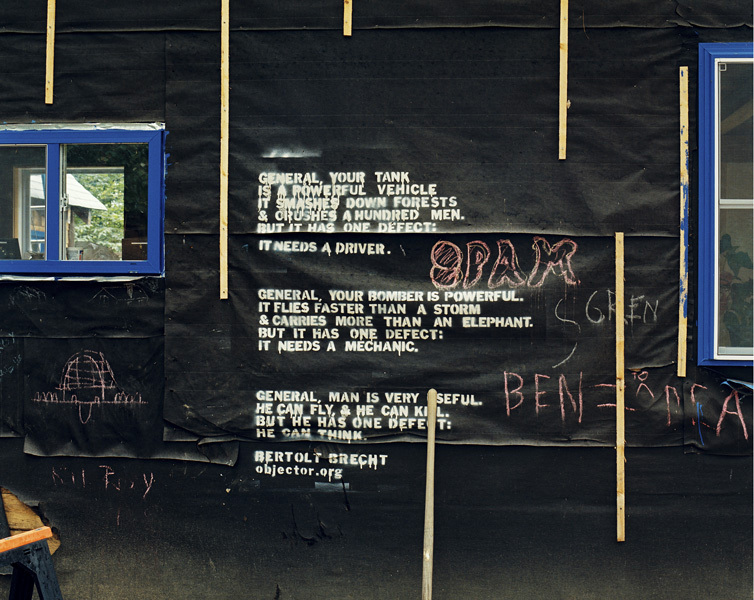 GENERAL, YOUR TANK
IS A POWERFUL VEHICLE
IT SMASHES DOWN FORESTS
& CRUSHES A HUNDRED MEN.
BUT IT HAS ONE DEFECT:
IT NEEDS A DRIVER.
SPAM
GENERAL, YOUR BOMBER IS POWERFUL.
IT FLIES FASTER THAN A STORM
& CARRIES MORE THAN AN ELEPHANT.
BUT IT HAS ONE DEFECT:
IT NEEDS A MECHANIC.
BEN
TO
GENERAL, MAN IS VERY USEFUL.
HE CAN FLY, & HE CAN KILL.
BUT HE HAS ONE DEFECT:
HE CAN THINK.
BERTOLT BRECHT
objector.org